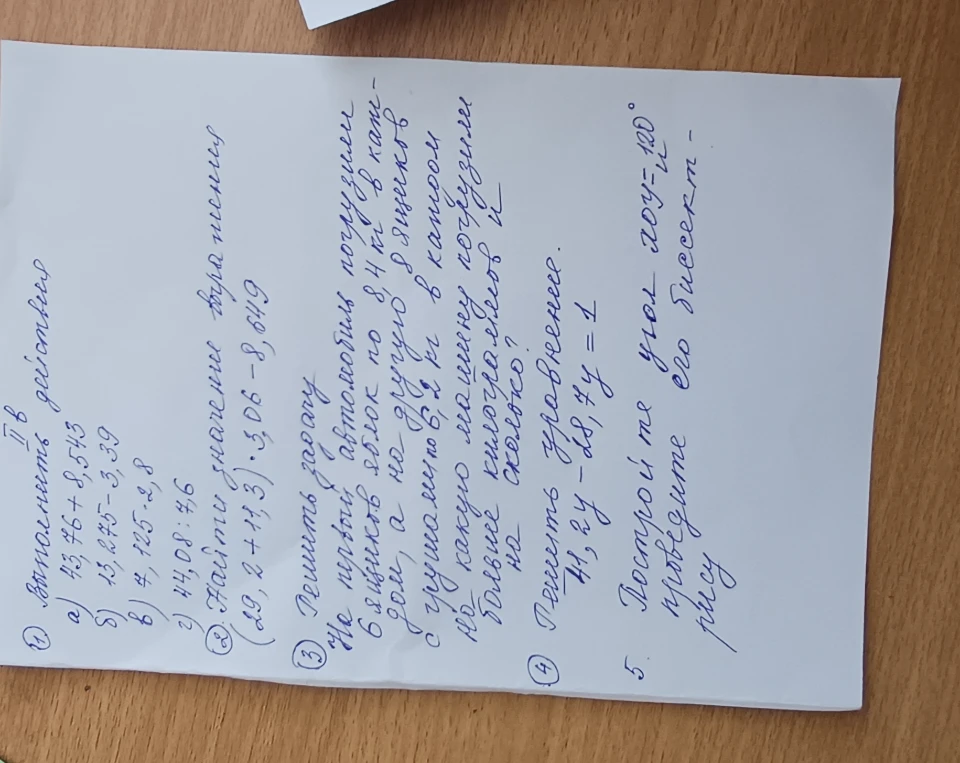 II в
① Выполнить действия
а) 43,76 + 8,543
б) 13,275 - 3,39
в) 7,125 · 2,8
г) 44,08 : 7,6
② Найти значение выражения
(29,2 + 11,3) · 3,06 - 8,649
③ Решить задачу
На первый автомобиль погрузили
6 ящиков яблок по 8,4 кг в каж-
дом, а на другую 8 ящиков
с грушами по 6,2 кг в каждом
на какую машину погрузили
больше килограммов и
на сколько?
④ Решить уравнение.
41,2у - 28,7у = 1
5. Постройте угол хоу = 120° и
проведите его биссект-
рису